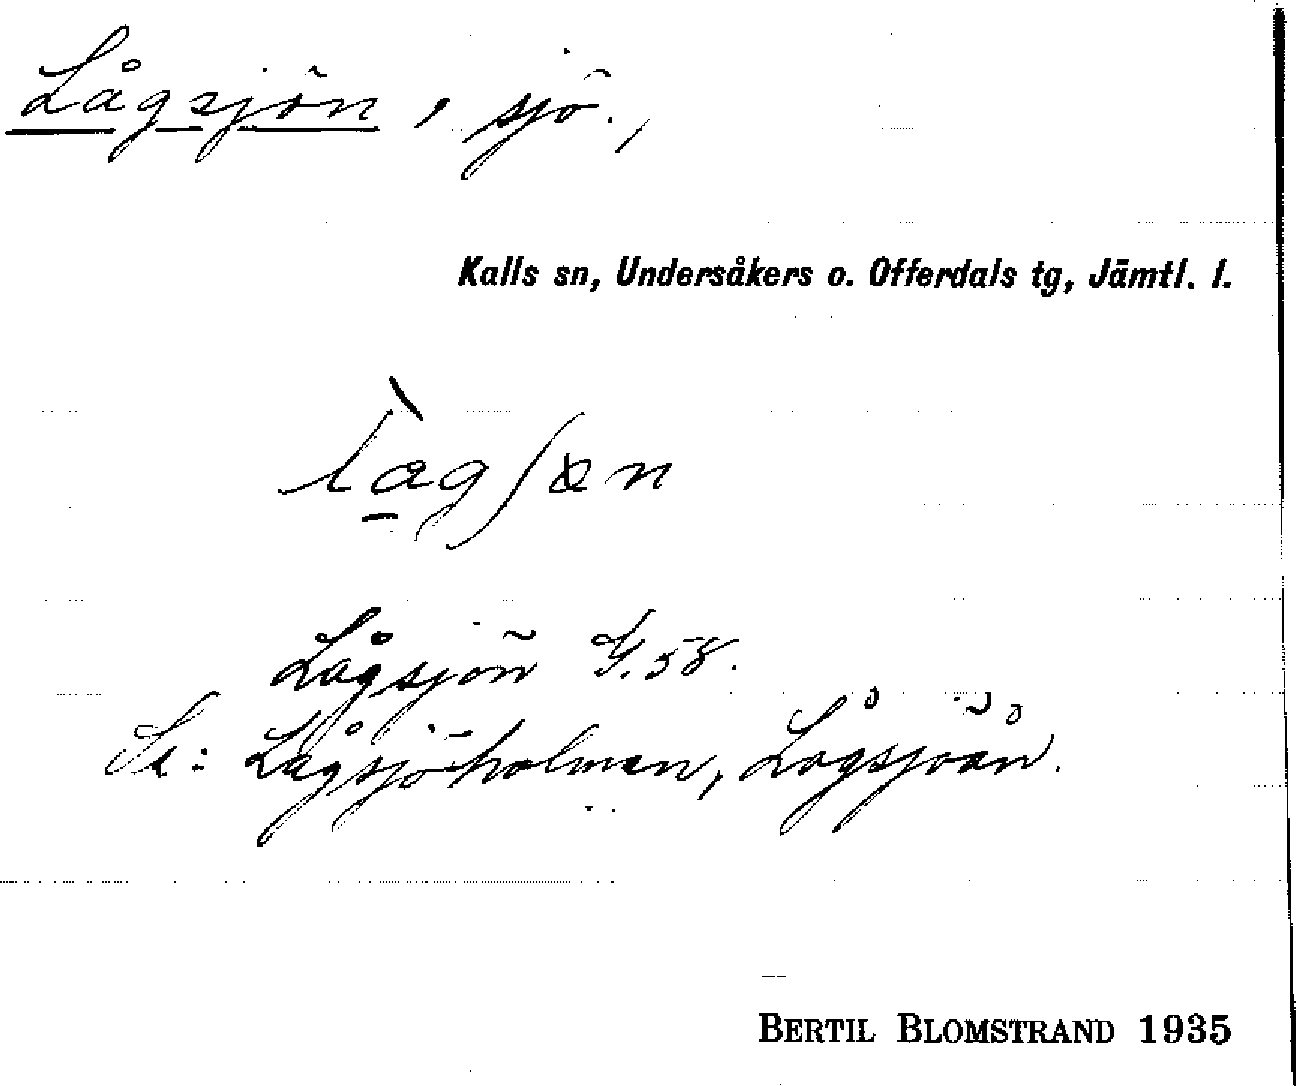 Lågsjön, sjö.,
Kalls sn, Undersåkers o. Offerdals tg, Jämtl. l.
Lågsjön G. 58.
Se: Lågsjöholmen, Lågsjöån.
BERTIL BLOMSTRAND 1935